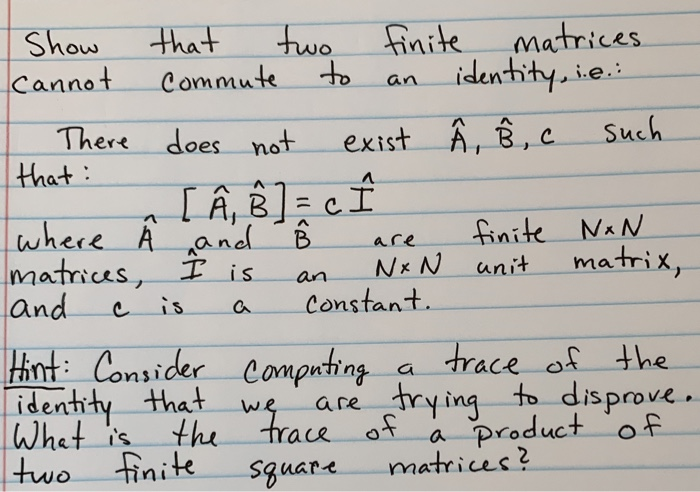 Show that two finite matrices
cannot commute to an identity, i.e.:
There does not exist Â, B̂, c such
that:
[Â, B̂] = c Î
where Â and B̂ are finite N×N
matrices, Î is an N×N unit matrix,
and c is a constant.
Hint: Consider computing a trace of the
identity that we are trying to disprove.
What is the trace of a product of
two finite square matrices?